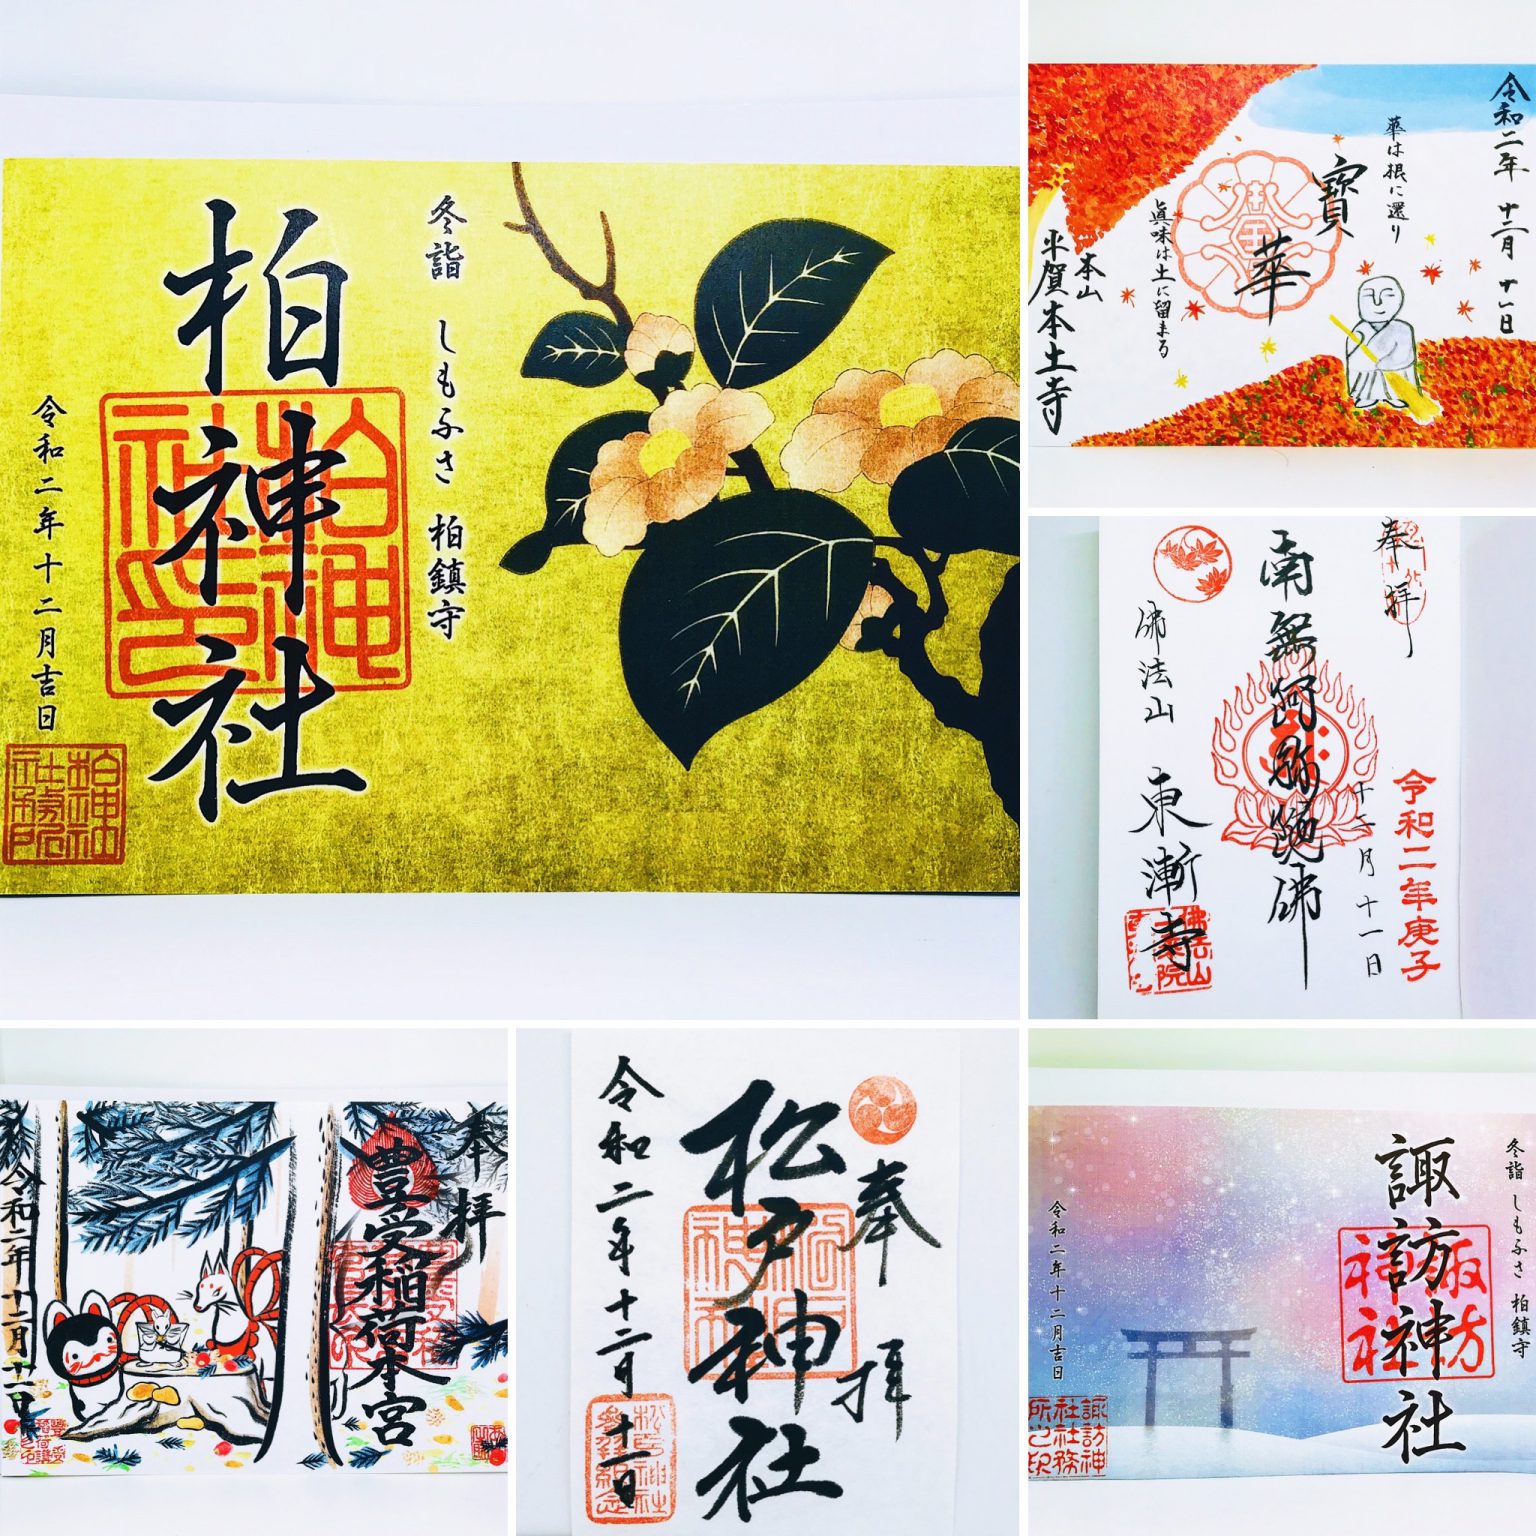 冬詣 しもふさ 柏鎮守
柏神社
令和二年十二月吉日
柏神社
社務所印
令和二年 十二月 十一日
華は根に還り
寶華
眞味は土に留まる
本山
平賀本土寺
奉拝
令和二年庚子
十二月十一日
南無阿弥陀佛
佛法山 東漸寺
奉拝
豊受稲荷本宮
令和二年十二月十一日
奉拝
松戸神社
令和二年十二月十一日
冬詣 しもふさ 柏鎮守
諏訪神社
諏訪
神社
令和二年十二月吉日
諏訪神
社社務
所之印